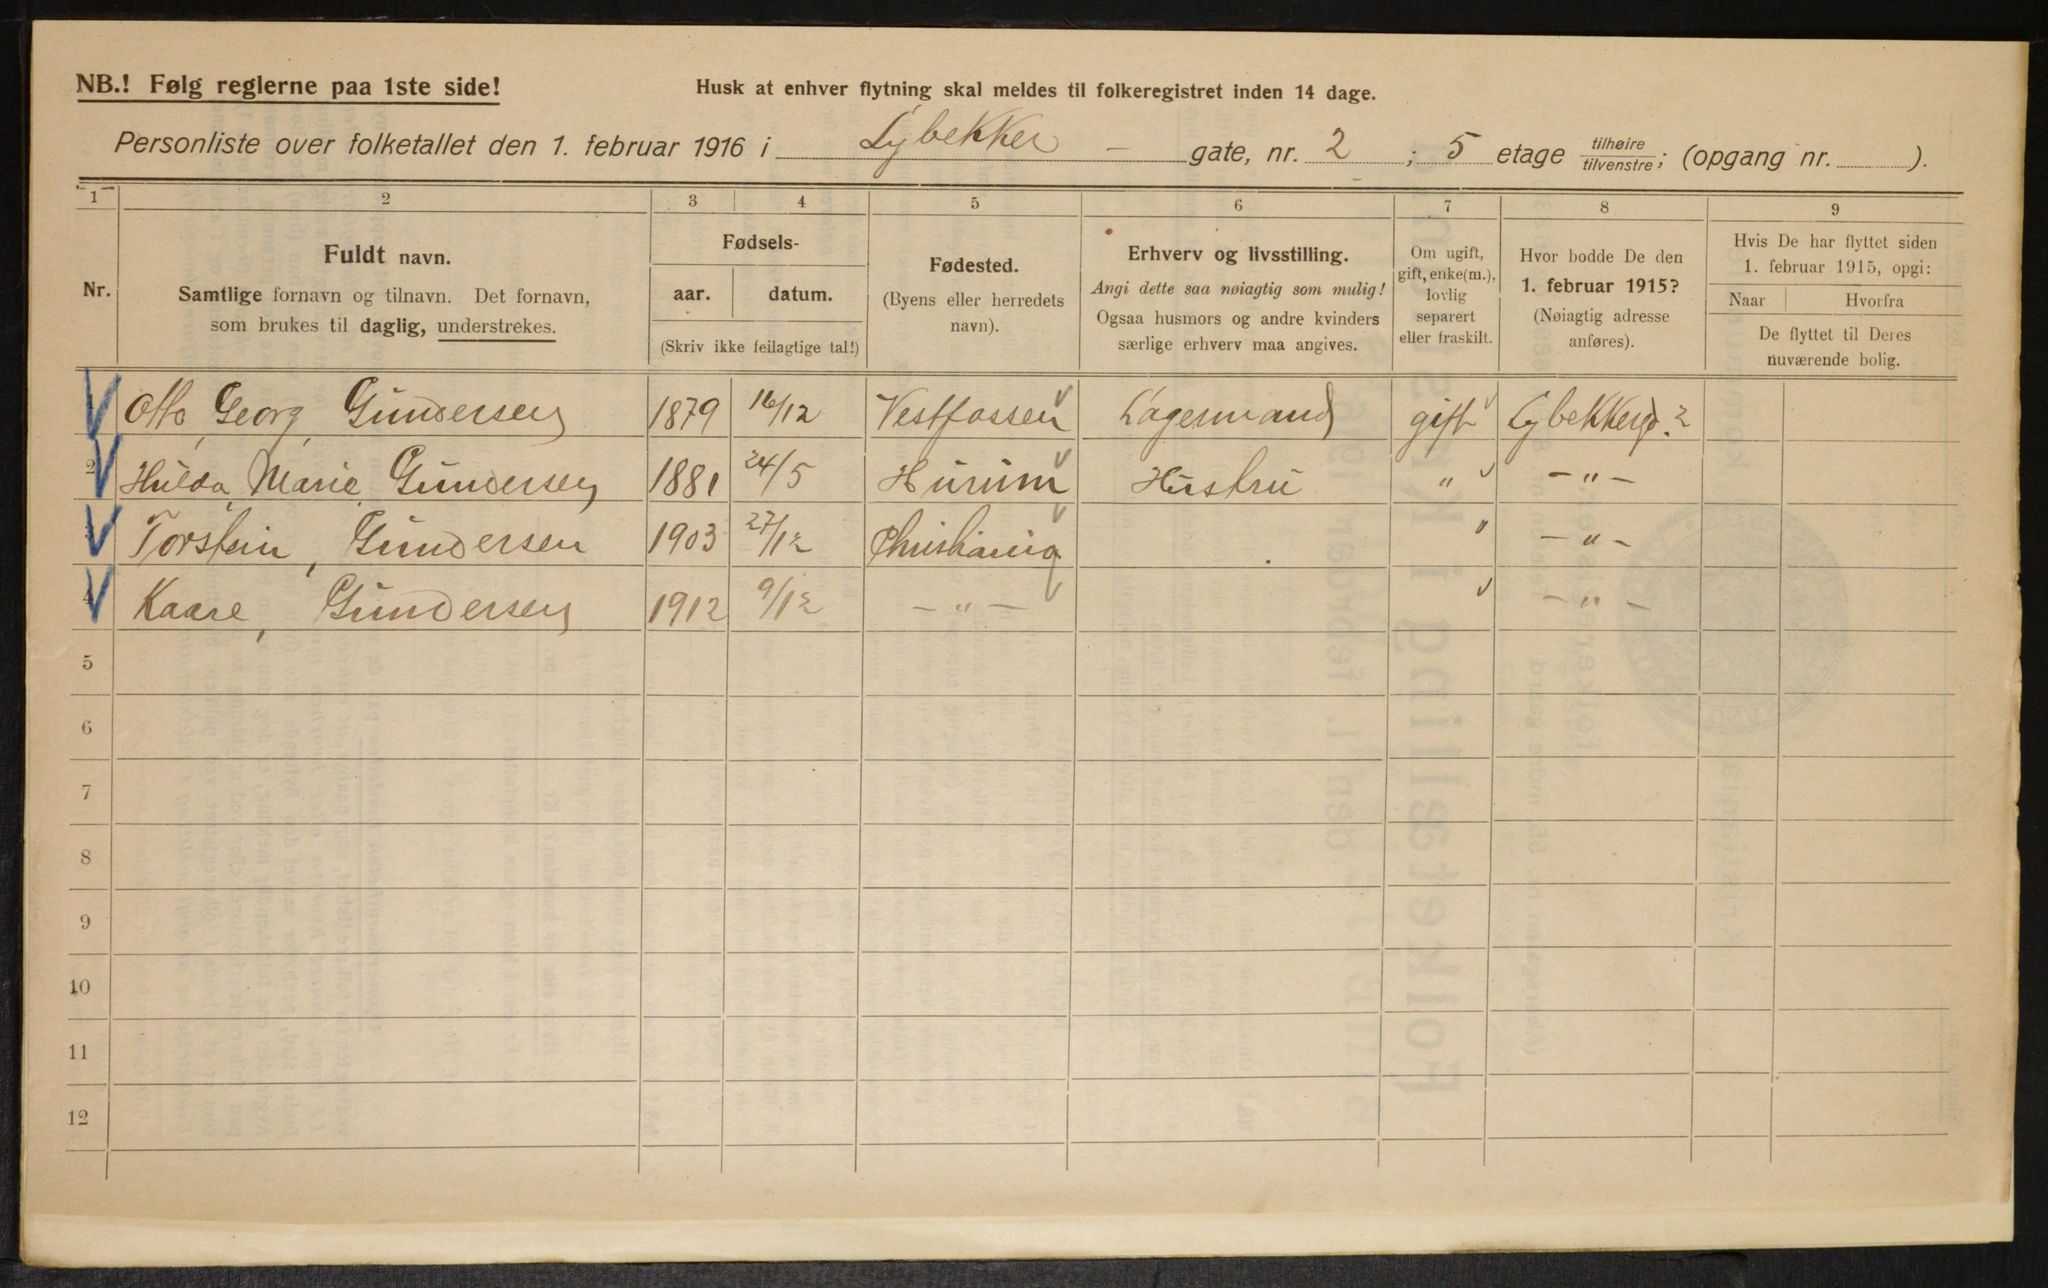 NB.! Følg reglerne paa 1ste side!
Husk at enhver flytning skal meldes til folkeregistret inden 14 dage.
Personliste over folketallet den 1. februar 1916 i Lybekker - gate, nr. 2 ; 5 etage tilhøire / tilvenstre; (opgang nr. ).
1 2 3 4 5 6 7 8 9
Nr.
Fuldt navn.
Samtlige fornavn og tilnavn. Det fornavn,
som brukes til daglig, understrekes.
Fødsels-
aar. datum.
(Skriv ikke feilagtige tal!)
Fødested.
(Byens eller herredets
navn).
Erhverv og livsstilling.
Angi dette saa nøiagtig som mulig!
Ogsaa husmors og andre kvinders
særlige erhverv maa angives.
Om ugift,
gift, enke(m.),
lovlig
separert
eller fraskilt.
Hvor bodde De den
1. februar 1915?
(Nøiagtig adresse
anføres).
Hvis De har flyttet siden
1. februar 1915, opgi:
Naar Hvorfra
De flyttet til Deres
nuværende bolig.
Otto Georg Gundersen 1879 16/12 Vestfossen Lagermand gift Lybekkergd. 2
2 Hulda Marie Gundersen 1881 24/5 Hurum Hustru " - " -
3 Torstein, Gundersen 1903 27/12 Christiania " - " -
4 Kaare, Gundersen 1912 9/12 - " - - " -
5
6
7
8
9
10
11
12